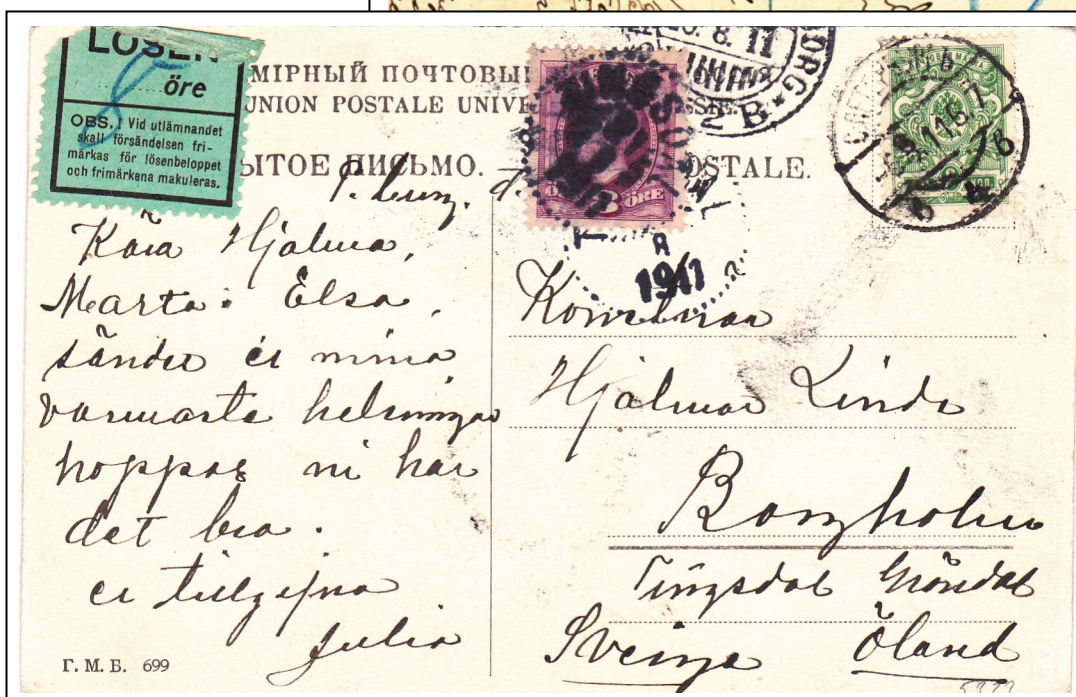 LÖSEN
öre
OBS.! Vid utlämnandet
skall försändelsen fri-
märkas för lösenbeloppet
och frimärkena makuleras.
МІРНЫЙ ПОЧТОВЫ
UNION POSTALE UNIVE
ЫТОЕ ПИСЬМО.
OSTALE.
8. 11
BORG
2 B.
8 ÖRE
1911
КОП.
Kära Hjalmar,
Marta. Elsa,
sänder er mina
varmaste helsningar
hoppas ni har
det bra.
er tillgifna
Julia
Г. М. Б. 699
Hjalmar Linde
Borgholm
Öland